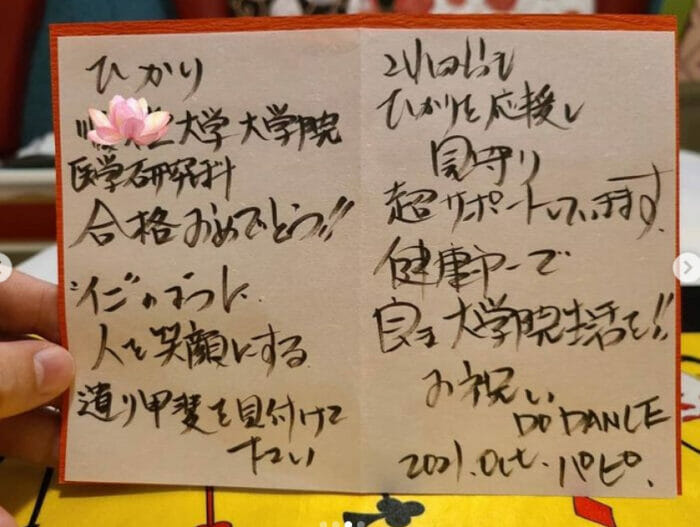 ひかり
大学 大学院
医学研究科
合格おめでとう!!
人を笑顔にする
遣り甲斐を見付けて
下さい
ひかりを応援し
見守り
超サポートしています.
健康第一で
良き大学院生活を!!
お祝い
DO DANCE
2021.Oct.パピ.